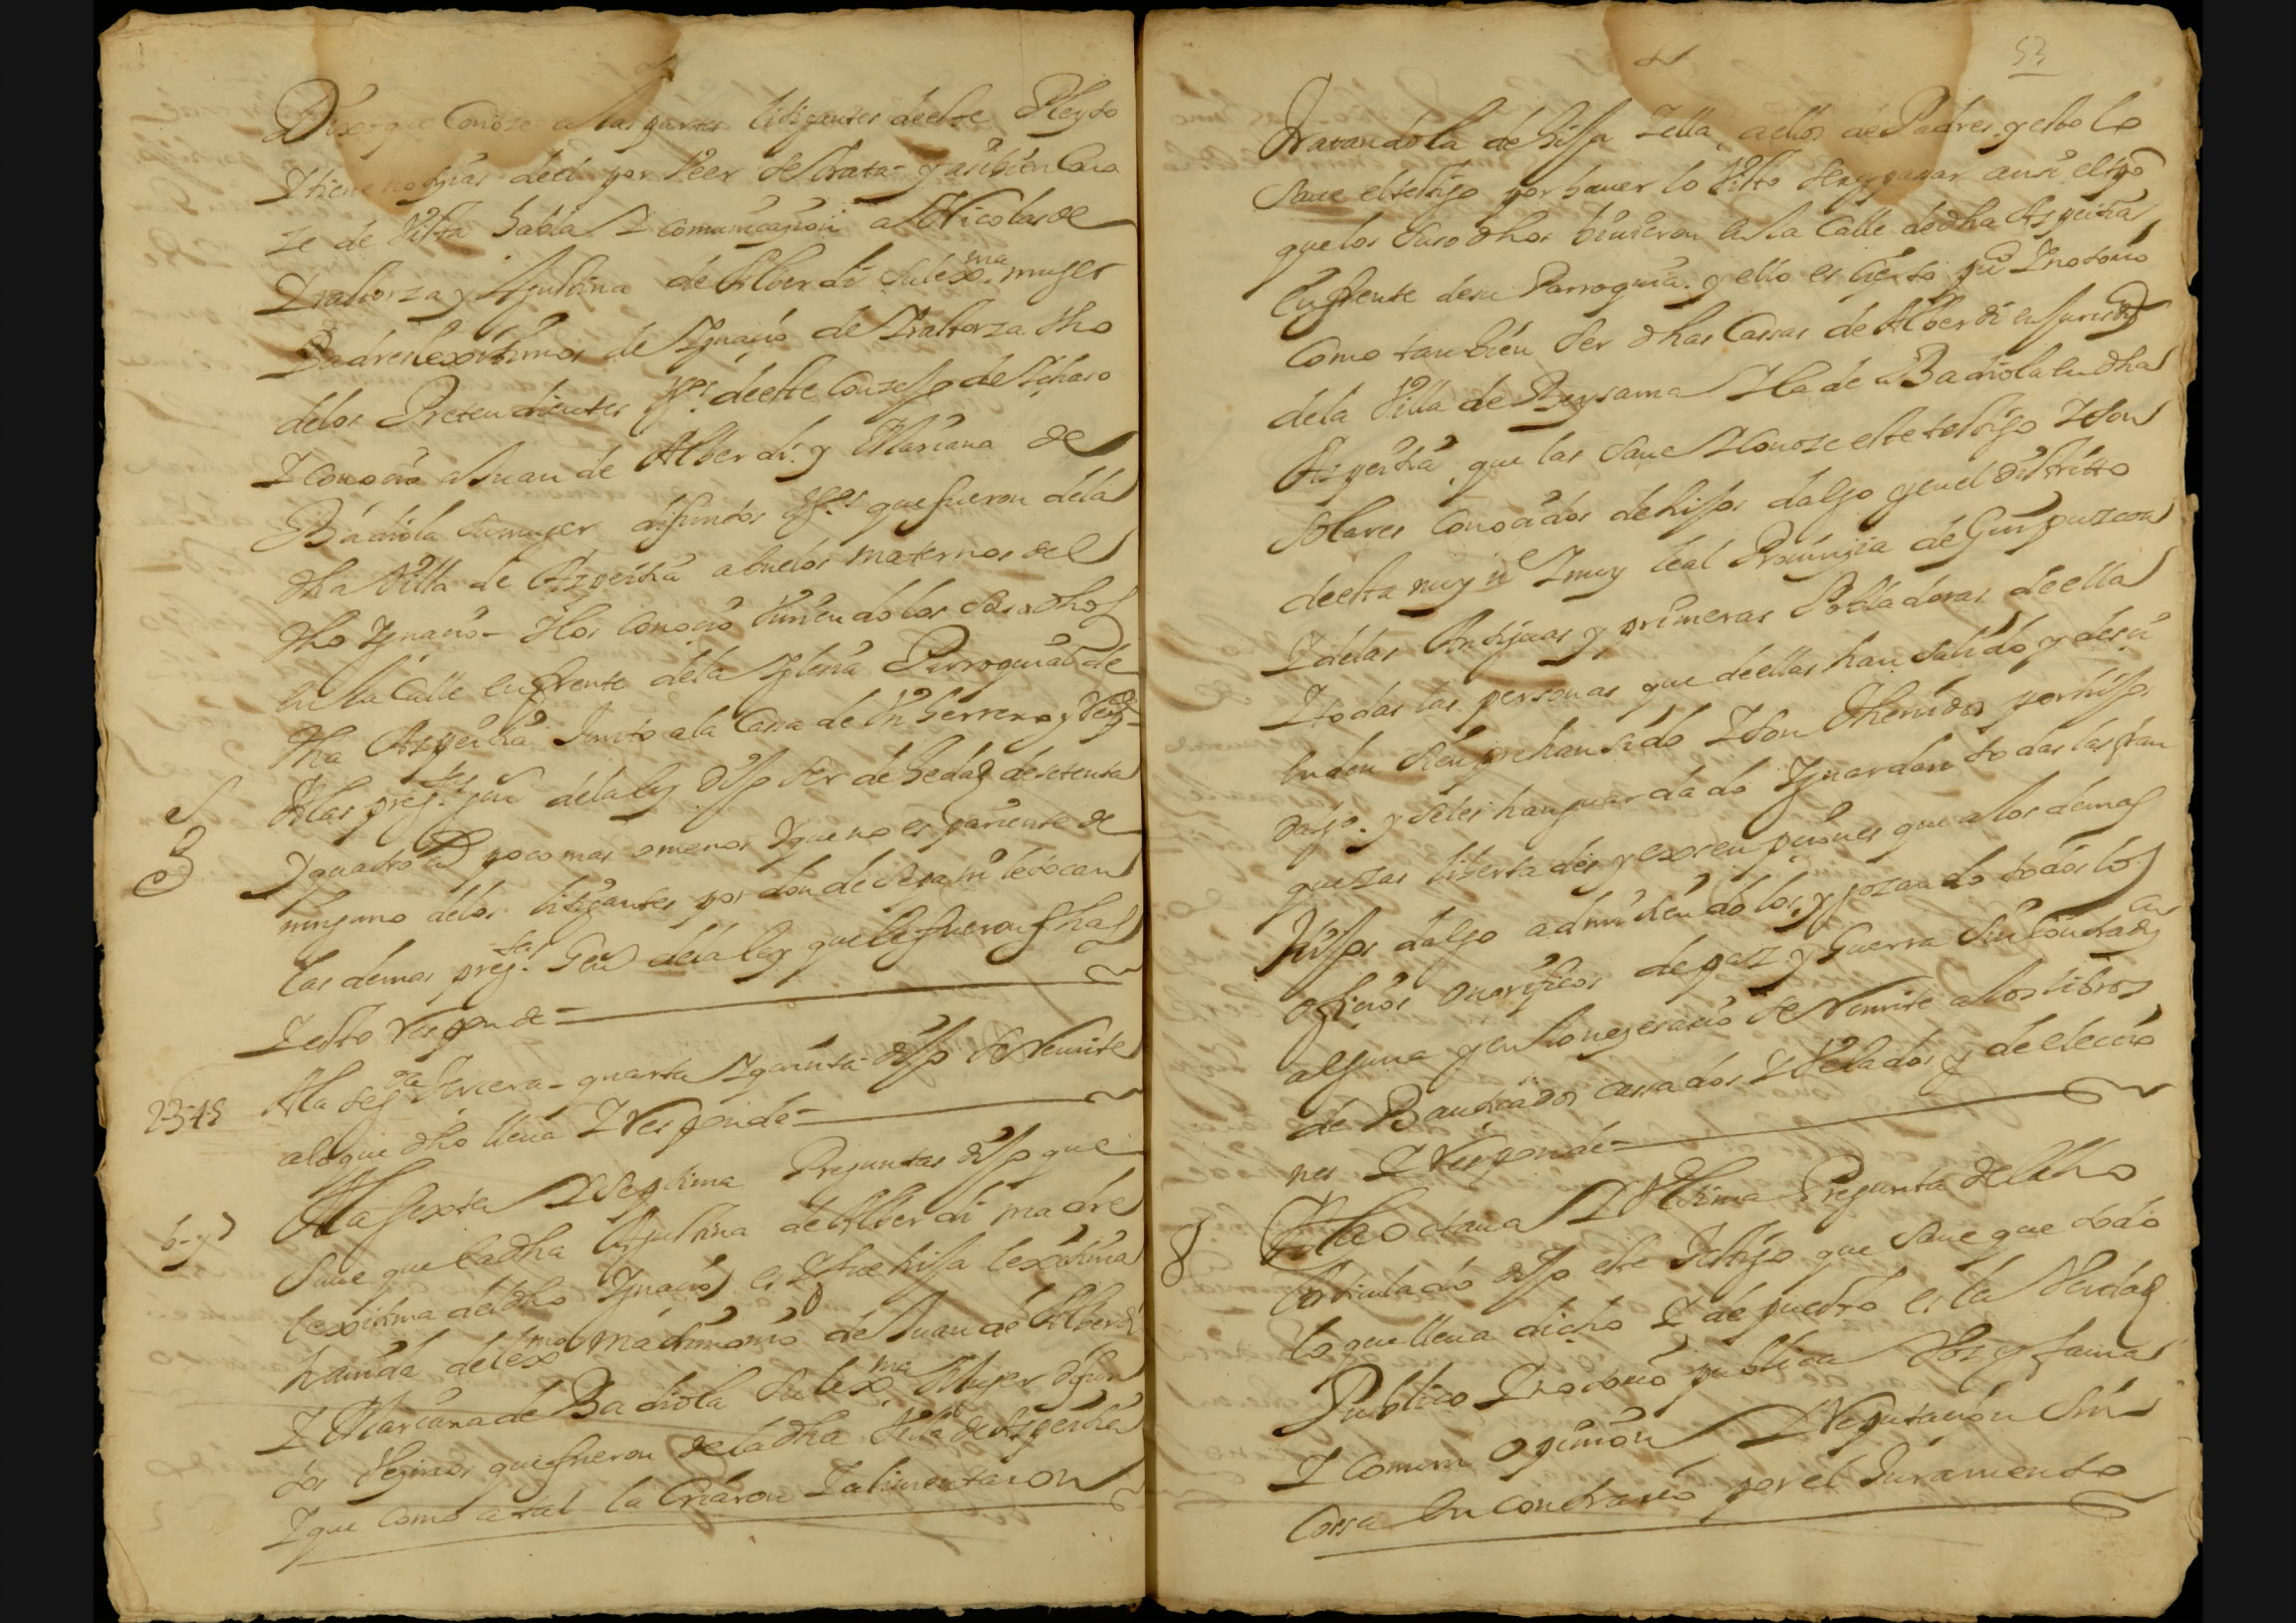 Dixo que Conoze a las partes litigantes deeste Pleyto
I tiene notiçias deel por Veer se trata y asibien Cono
ze de Vista habla I comunicaçion a Nicolas de
Iraltorza y Agustina de Alberdi su lexma. muger
Padres lexitimos de Ignaçio de Iraltorza dho
delos Pretendientes Vos. deeste Conzejo de Ichaso
I conoçio a Juan de Alberdi y Mariana de
Badiola su muger difuntos Vos. que fueron dela
dha Villa de Azpeitia abuelos maternos del
dho Ignaçio - I los conoçio Viuiendo los suso dhos
en la Calle enfrente dela Iglesia Parroquial de
dha Azpeitia Junto ala Cassa de Vn herrero y Resde
S
G
Alas pregtas gen dela ley dijo ser de hedad de setenta
I quatro as poco mas o menos I que no es pariente de
ninguno delos litigantes por donde sepa ni le tocan
las demas pregtas. Gen dela ley que le fueron fhas
I esto Responde -
2-3-4-5
Ala segda terçera - quarta I quinta dijo se Remite
alo que dho lleua I Responde -
6-y 7
Ala sexta I Septima Preguntas dijo que
saue que la dha Agustina de Alberdi madre
lexitima deldho Ignaçio es I fue hija lexitima
hauida de lexmo matrimonio de Juan de Alberdi
I Mariana de Badiola su lexma Muger difun
tos Vezinos que fueron dela dha Villa de Azpeitia
I que como a tal la Criaron I alimentaron
53
tratandola de hija I ella a ellos de Padres y esto lo
saue el testigo por hauer lo Visto
que los suso dhos biuieron en la Calle dedha Azpeitia
enfrente desu Parroquia y ello es çierto pu I notorio
Como tambien ser dhas Cassas de Alberdi en Jurisdn
dela Villa de Beyzama I la de Badiola en dha
Azpeitia que las saue I Conoze este testigo I son
solares conoçidos de hijos dalgo y enel distritto
deesta muy n I muy leal Prouinçia de Guipuzcoa
I delas Antiguas y primeras Pobladoras deella
I todas las personas que deellas han salido y desçi
enden siempre han sido I son thenidos por hijos
dalgo. y seles han guardado I guardan todas las fran
quezas libertades y exsempçiones que alos demas
hijos dalgo admitiendolos y gozando todos los
ofiçios onorificos de paz y Guerra sin contradn
alguna y en lo nezesario se Remite alos libros
de Bautiçados cassados I Velados y de eleçio
nes I Responde -
8
Ala octaua I Vltima Pregunta deldho
Articulado dijo este Testigo que saue que todo
lo que lleua dicho I depuesto es la Verdad
Publico I notorio publica Voz y fama
I comun opinion I Reputaçion sin
Cossa en contrario por el Juramento